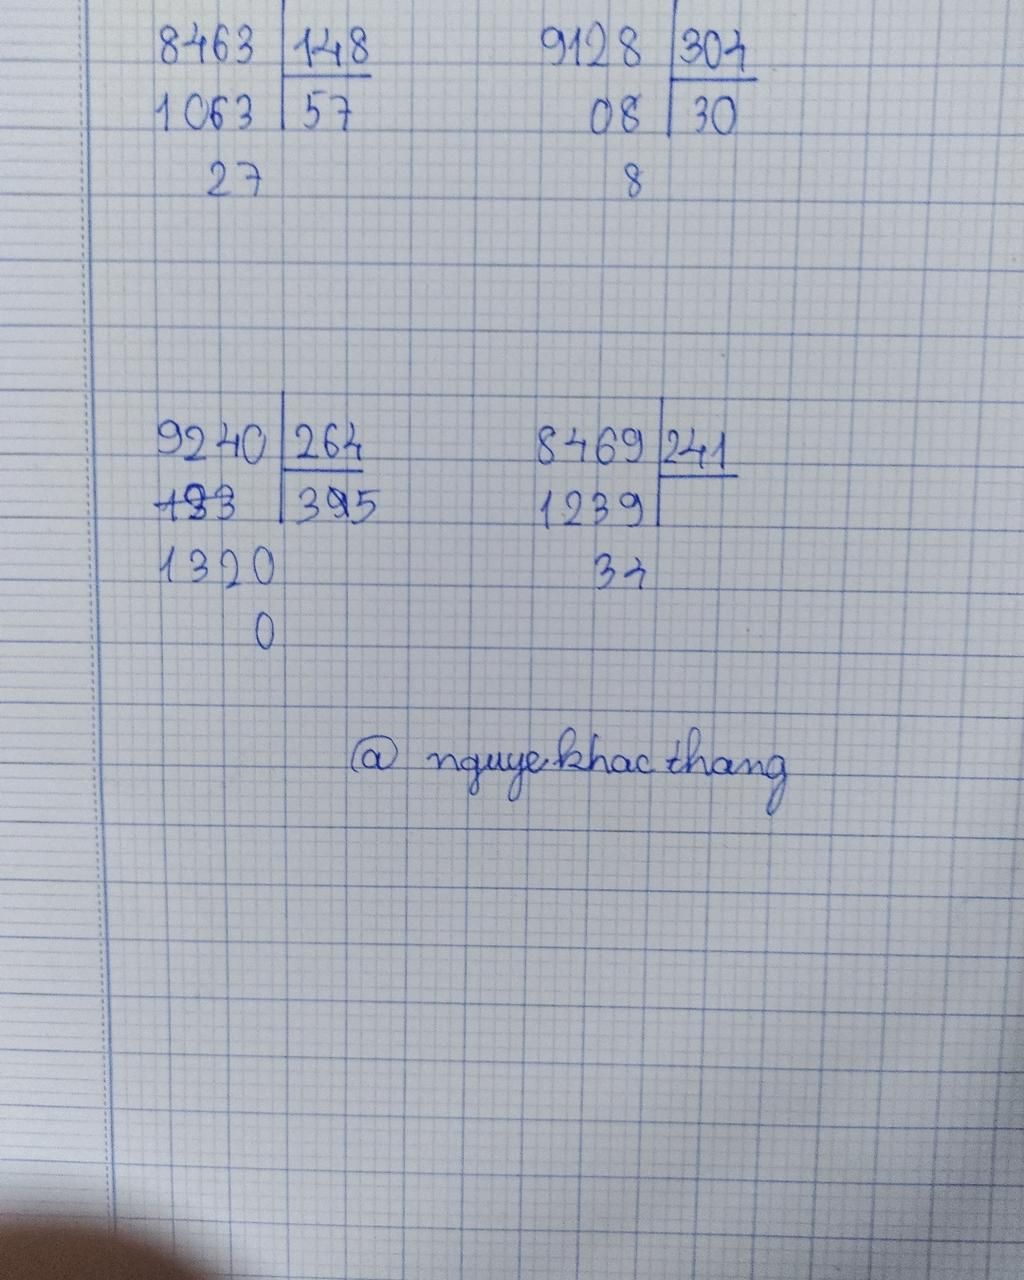 8463 148
1063 57
27
9128 304
08 30
8
9240 264
1320
0
8469 241
1239
34
@ nguyekhacthang